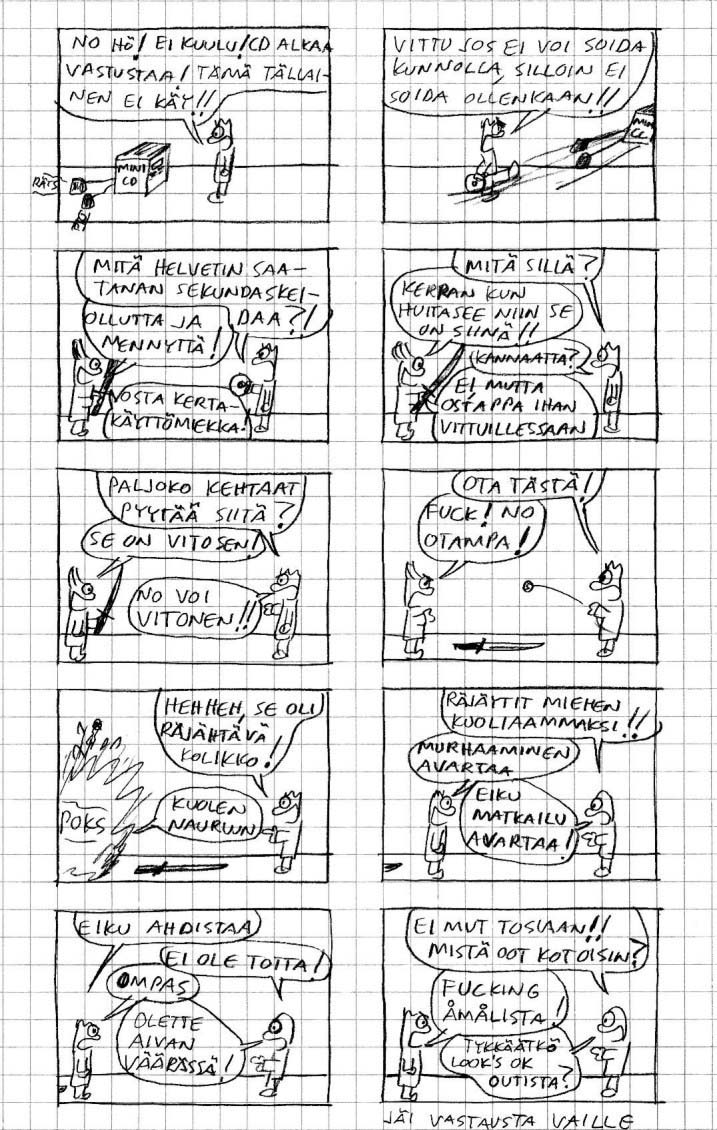 NO HÖ! EI KUULU! CD ALKAA
VASTUSTAA! TÄMÄ TÄLLAI-
NEN EI KÄY!!
MINI
CD
RÄTS
VITTU JOS EI VOI SOIDA
KUNNOLLA, SILLOIN EI
SOIDA OLLENKAAN!!
MINI
CD
MITÄ HELVETIN SAA-
TANAN SEKUNDASKEI-
DAA?!
OLLUTTA JA
MENNYTTÄ!
NOSTA KERTA-
KÄYTTÖMIEKKA!
MITÄ SILLÄ?
KERRAN KUN
HUITASEE NIIN SE
ON SIINÄ!!
KANNAATTA?
EI MUTTA
OSTAPPA IHAN
VITTUILLESSAAN
PALJOKO KEHTAAT
PYYTÄÄ SIITÄ?
SE ON VITOSEN!
NO VOI
VITONEN!!
OTA TÄSTÄ!
FUCK! NO
OTAMPA!
HEHHEH, SE OLI
RÄJÄHTÄVÄ
KOLIKKO!
POKS
KUOLEN
NAURUUN
RÄJÄYTIT MIEHEN
KUOLIAAMMAKSI!!
MURHAAMINEN
AVARTAA
EIKU
MATKAILU
AVARTAA!
EIKU AHDISTAA
EI OLE TOTTA!
OMPAS
OLETTE
AIVAN
VÄÄRÄSSÄ!
EI MUT TOSIAAN!!
MISTÄ OOT KOTOISIN?
FUCKING
ÅMÅLISTA!
TYKKÄÄTKÖ
LOOK'S OK
OUTISTA?
JÄI VASTAUSTA VAILLE